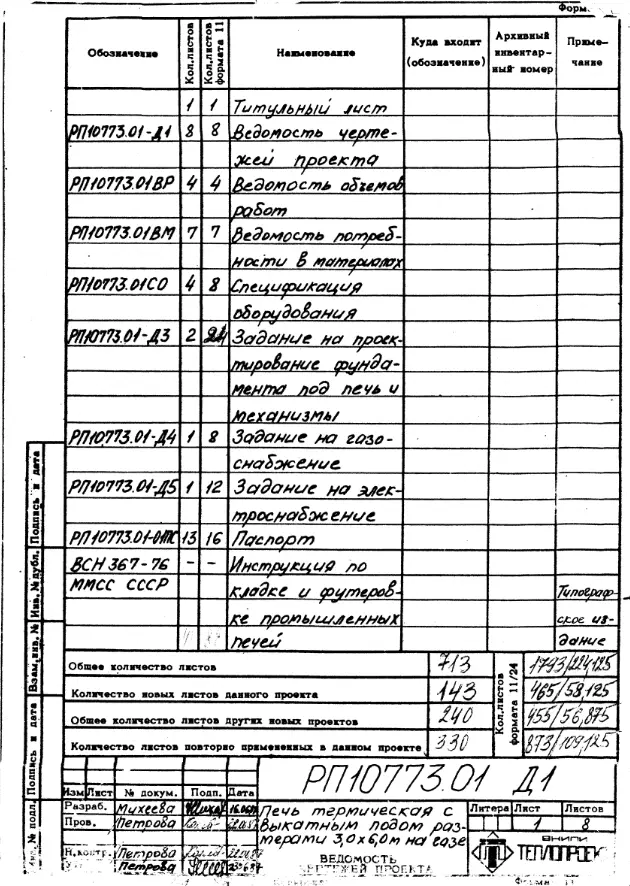 Форм.
Обозначение Кол.листов Кол.листов формата 11 Наименование Куда входит (обозначение) Архивный инвентар- ный номер Приме- чание
1 1 Титульный лист
РП10773.01-Д1 8 8 Ведомость черте-
жей проекта
РП10773.01ВР 4 4 Ведомость объемов
работ
РП10773.01ВМ 7 7 Ведомость потреб-
ности в материалах
РП10773.01СО 4 8 Спецификация
оборудования
РП10773.01-Д3 2 24 Задание на проек-
тирование фунда-
мента под печь и
механизмы
РП10773.01-Д4 1 8 Задание на газо-
снабжение
РП10773.01-Д5 1 12 Задание на элек-
троснабжение
РП10773.01-01ПС 13 16 Паспорт
ВСН 367-76 - - Инструкция по
ММСС СССР кладке и футеров- Типограф-
ке промышленных ское из-
печей дание
Общее количество листов 713 Кол.листов формата 11/24 1793/224,125
Количество новых листов данного проекта 143 465/58,125
Общее количество листов других новых проектов 240 455/56,875
Количество листов повторно примененных в данном проекте 330 873/109,125
Подпись и дата
Инв. № дубл.
Взам. инв. №
Подпись и дата
№ подл.
РП10773.01 Д1
Изм Лист № докум. Подп. Дата
Разраб. Михеева
Пров. Петрова
Н.контр. Петрова
Петрова
Печь термическая с
выкатным подом раз-
мерами 3,0х6,0м на газе
ВЕДОМОСТЬ
ЧЕРТЕЖЕЙ ПРОЕКТА
Литера Лист Листов
1 8
ВНИПИ
ТЕПЛОПРОЕКТ